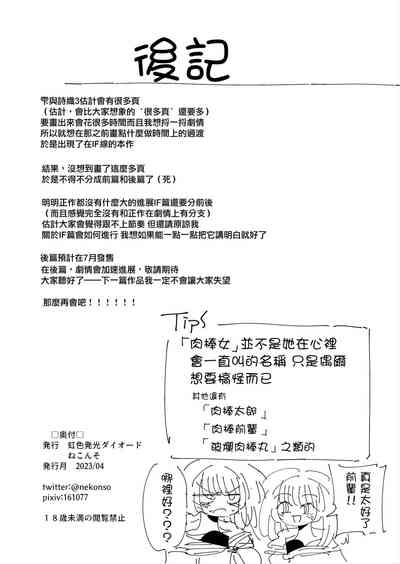 後記
雫與詩織3估計會有很多頁
(估計，會比大家想象的‵很多頁′還要多)
要畫出來會花很多時間而且我想捋一捋劇情
所以就想在那之前畫點什麼做時間上的過渡
於是出現了在IF線的本作
結果，沒想到畫了這麼多頁
於是不得不分成前篇和後篇了（死）
明明正作都沒有什麼大的進展IF篇還要分前後
（而且感覺完全沒有和正作在劇情上有分支）
估計大家會覺得跟不上節奏 但還請原諒我
關於IF篇會如何進行 我想如果能一點一點把它講明白就好了
後篇預計在7月發售
在後篇，劇情會加速進展，敬請期待
大家聽好了——下一篇作品我一定不會讓大家失望
那麼再會吧！！！！！！
Tips
「肉棒女」並不是她在心裡
會一直叫的名稱 只是偶爾
想要搞怪而已
其他還有
「肉棒太郎」
「肉棒前輩」
「破爛肉棒丸」之類的
□奥付□
発行 虹色発光ダイオード
ねこんそ
発行月 2023/04
twitter:@nekonso
pixiv:161077
１８歳未満の閲覧禁止
真是太好了
前輩!!
哪裡好???